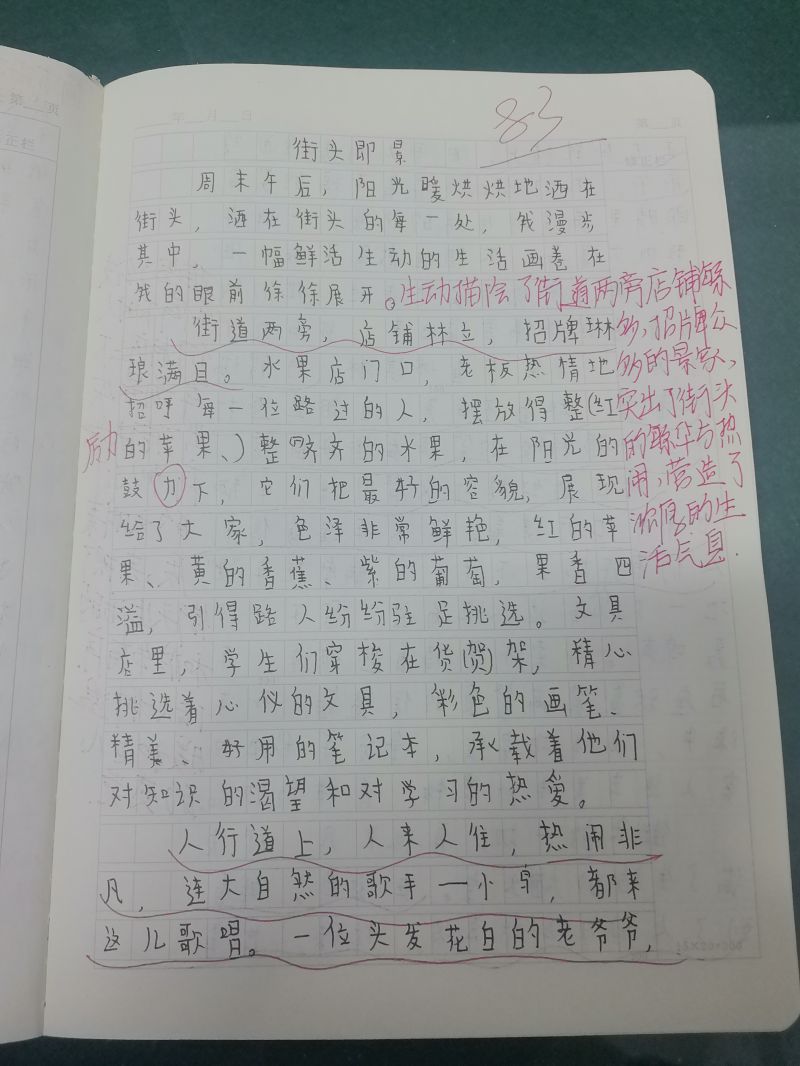 第 页
正栏
年 月 日
第 页
83
修正栏
街头即景
周末午后，阳光暖烘烘地洒在
街头，洒在街头的每一处，我漫步
其中，一幅鲜活生动的生活画卷在
我的眼前徐徐展开。
生动描绘了街道两旁店铺繁
多，招牌众
多的景象，
突出了街头
的繁华与热
闹，营造了
浓厚的生
活气息.
街道两旁，店铺林立，招牌琳
琅满目。水果店门口，老板热情地
招呼每一位路过的人，摆放得整(红
的苹果、)整齐齐的水果，在阳光的
励
鼓力下，它们把最好的容貌，展现
给了大家，色泽非常鲜艳，红的苹
果、黄的香蕉、紫的葡萄，果香四
溢，引得路人纷纷驻足挑选。文具
店里，学生们穿梭在货(贺)架，精心
挑选着心仪的文具，彩色的画笔、
精美、好用的笔记本，承载着他们
对知识的渴望和对学习的热爱。
人行道上，人来人往，热闹非
凡，连大自然的歌手一小鸟，都来
这儿歌唱。一位头发花白的老爷爷，